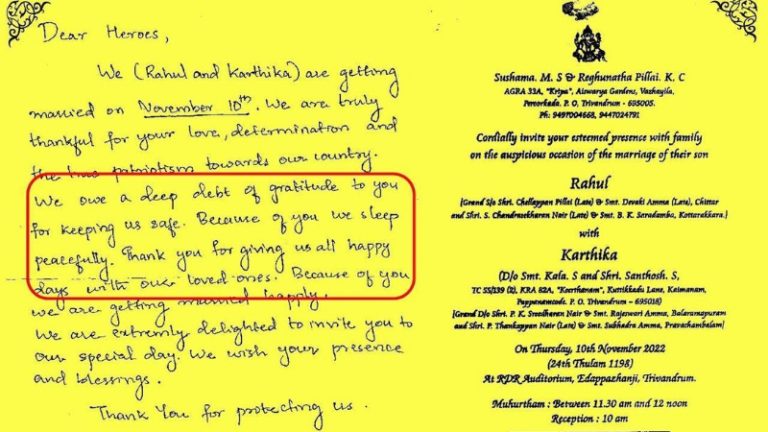 Dear Heroes,
We (Rahul and Karthika) are getting
married on November 10th. We are truly
thankful for your love, determination and
the true patriotism towards our country.
We owe a deep debt of gratitude to you
for keeping us safe. Because of you we sleep
peacefully. Thank you for giving us all happy
days with our loved ones. Because of you
we are getting married happily.
We are extremely delighted to invite you to
our special day. We wish your presence
and blessings.
Thank You for protecting us.
Sushama. M. S & Reghunatha Pillai. K. C
AGRA 33A, "Kripa", Aiswarya Gardens, Vazhayila,
Peroorkada. P. O, Trivandrum - 695005.
Ph: 9497004668, 9447024791
Cordially invite your esteemed presence with family
on the auspicious occasion of the marriage of their son
Rahul
{Grand S/o Shri. Chellappan Pillai (Late) & Smt. Devaki Amma (Late), Chittar
and Shri. S. Chandrasekharan Nair (Late) & Smt. B. K. Saradamba, Kottarakkara.}
with
Karthika
(D/o Smt. Kala. S and Shri. Santhosh. S,
TC 55/139 (2), KRA 82A, "Keerthanam", Kuttikkadu Lane, Kaimanam,
Pappanamcode. P. O, Trivandrum - 695018)
{Grand D/o Shri. P. K. Sreedharan Nair (Late) & Smt. Rajeswari Amma, Balaramapuram
and Shri. P. Thankappan Nair (Late) & Smt. Subhadra Amma, Pravachambalam}
On Thursday, 10th November 2022
(24th Thulam 1198)
At RDR Auditorium, Edappazhanji, Trivandrum.
Muhurtham : Between 11.30 am and 12 noon
Reception : 10 am